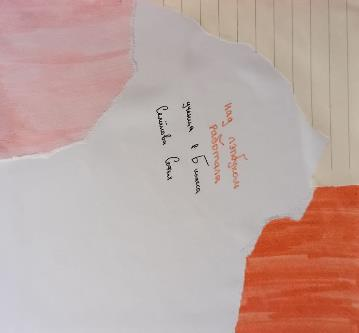 Над лэпбуком
работала
ученица 6 Б класса
Семёнова Софья